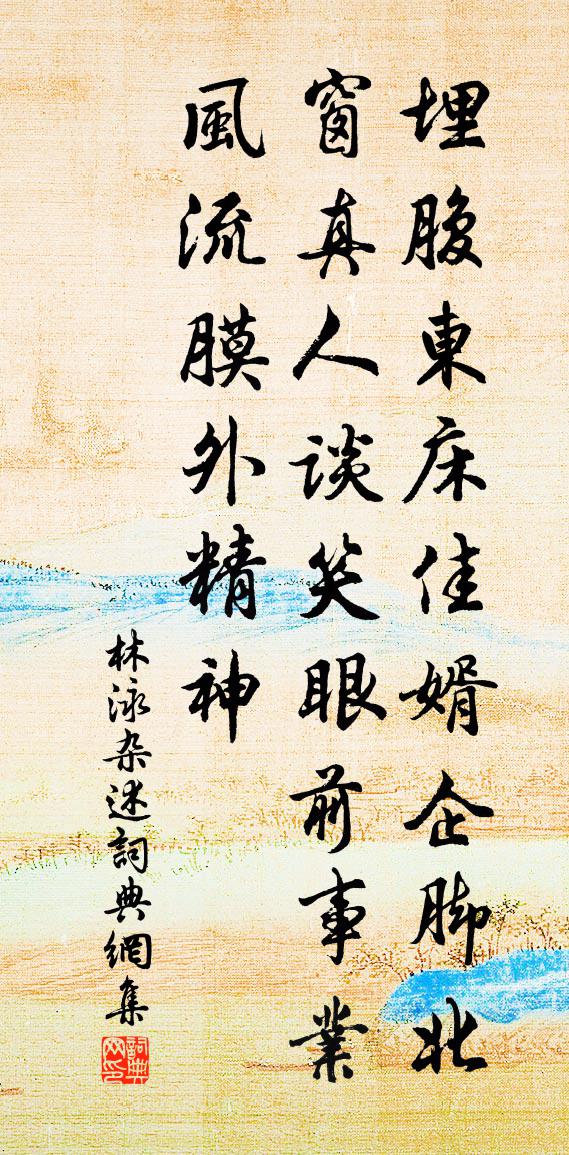 埋腹東床佳婿企脚北
窗真人談笑眼前事業
風流膜外精神
林泳杂述詞典網集
詞典网印